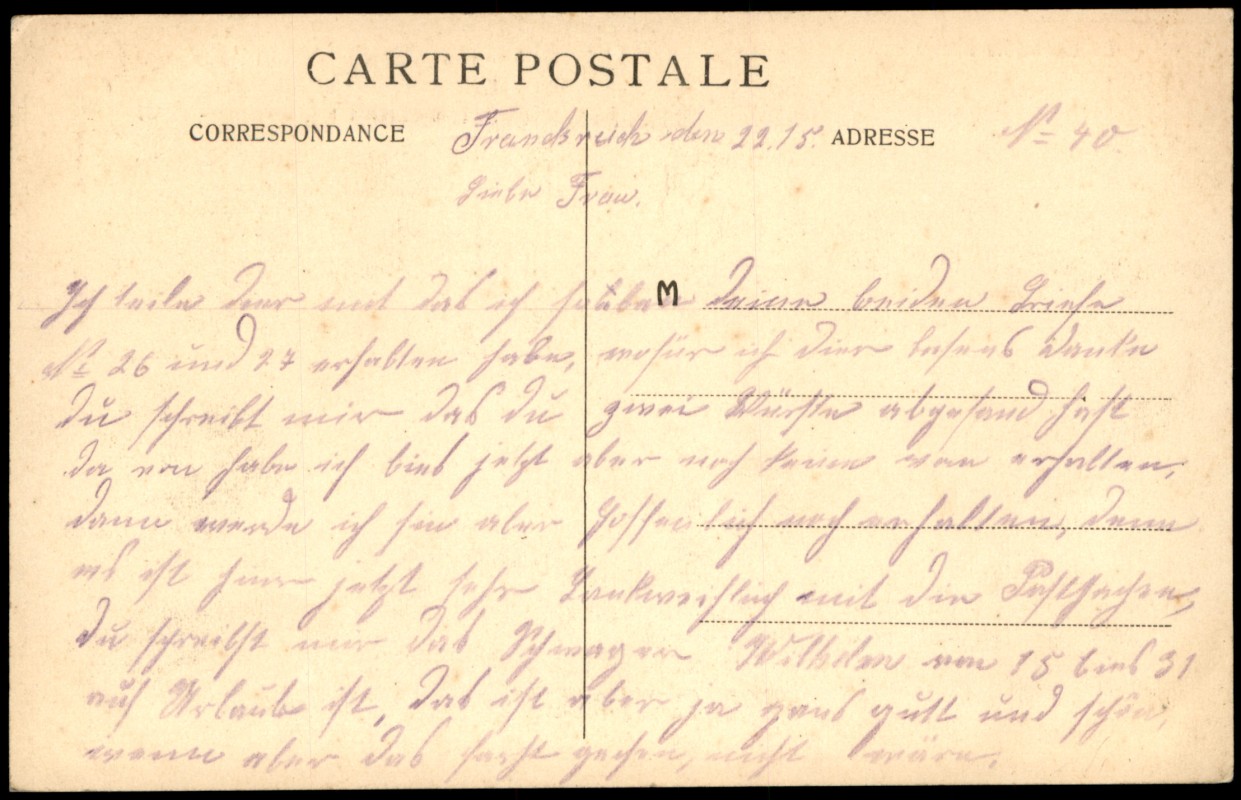 CARTE POSTALE
CORRESPONDANCE Frankreich den 22.15. ADRESSE No 40.
Liebe Frau.
Ich teile dier mit das ich M deine beiden Briefe
No 26 und 27 erhalten habe, wofür ich dier bestens danke
du schreibst mir das du zwei Würste abgesand hast
da von habe ich bies jetzt aber noch keine von erhalten,
dann werde ich sie aber hoffen lich noch erhalten, denn
es ist hier jetzt sehr mit die Postsachen,
du schreibst mir das Schwager Wilhelm von 15 bies 31
auf Urlaub ist, das ist aber ja gans gutt und schön,
wenn aber das nicht wäre.